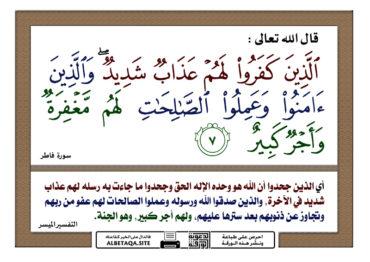 قال الله تعالى :
ٱلَّذِينَ كَفَرُوا۟ لَهُمْ عَذَابٌ شَدِيدٌ ۖ وَٱلَّذِينَ
ءَامَنُوا۟ وَعَمِلُوا۟ ٱلصَّـٰلِحَـٰتِ لَهُم مَّغْفِرَةٌ
وَأَجْرٌ كَبِيرٌ ٧
سورة فاطر
أي الذين جحدوا أن الله هو وحده الإله الحق وجحدوا ما جاءت به رسله لهم عذاب
شديد في الآخرة، والذين صدقوا الله ورسوله وعملوا الصالحات لهم عفو من ربهم
وتجاوز عن ذنوبهم بعد سترها عليهم، ولهم أجر كبير، وهو الجنة.
التفسير الميسر
احرص على طباعة
ونشر هذه الورقة
فالدال على الخير كفاعله
ALBETAQA.SITE